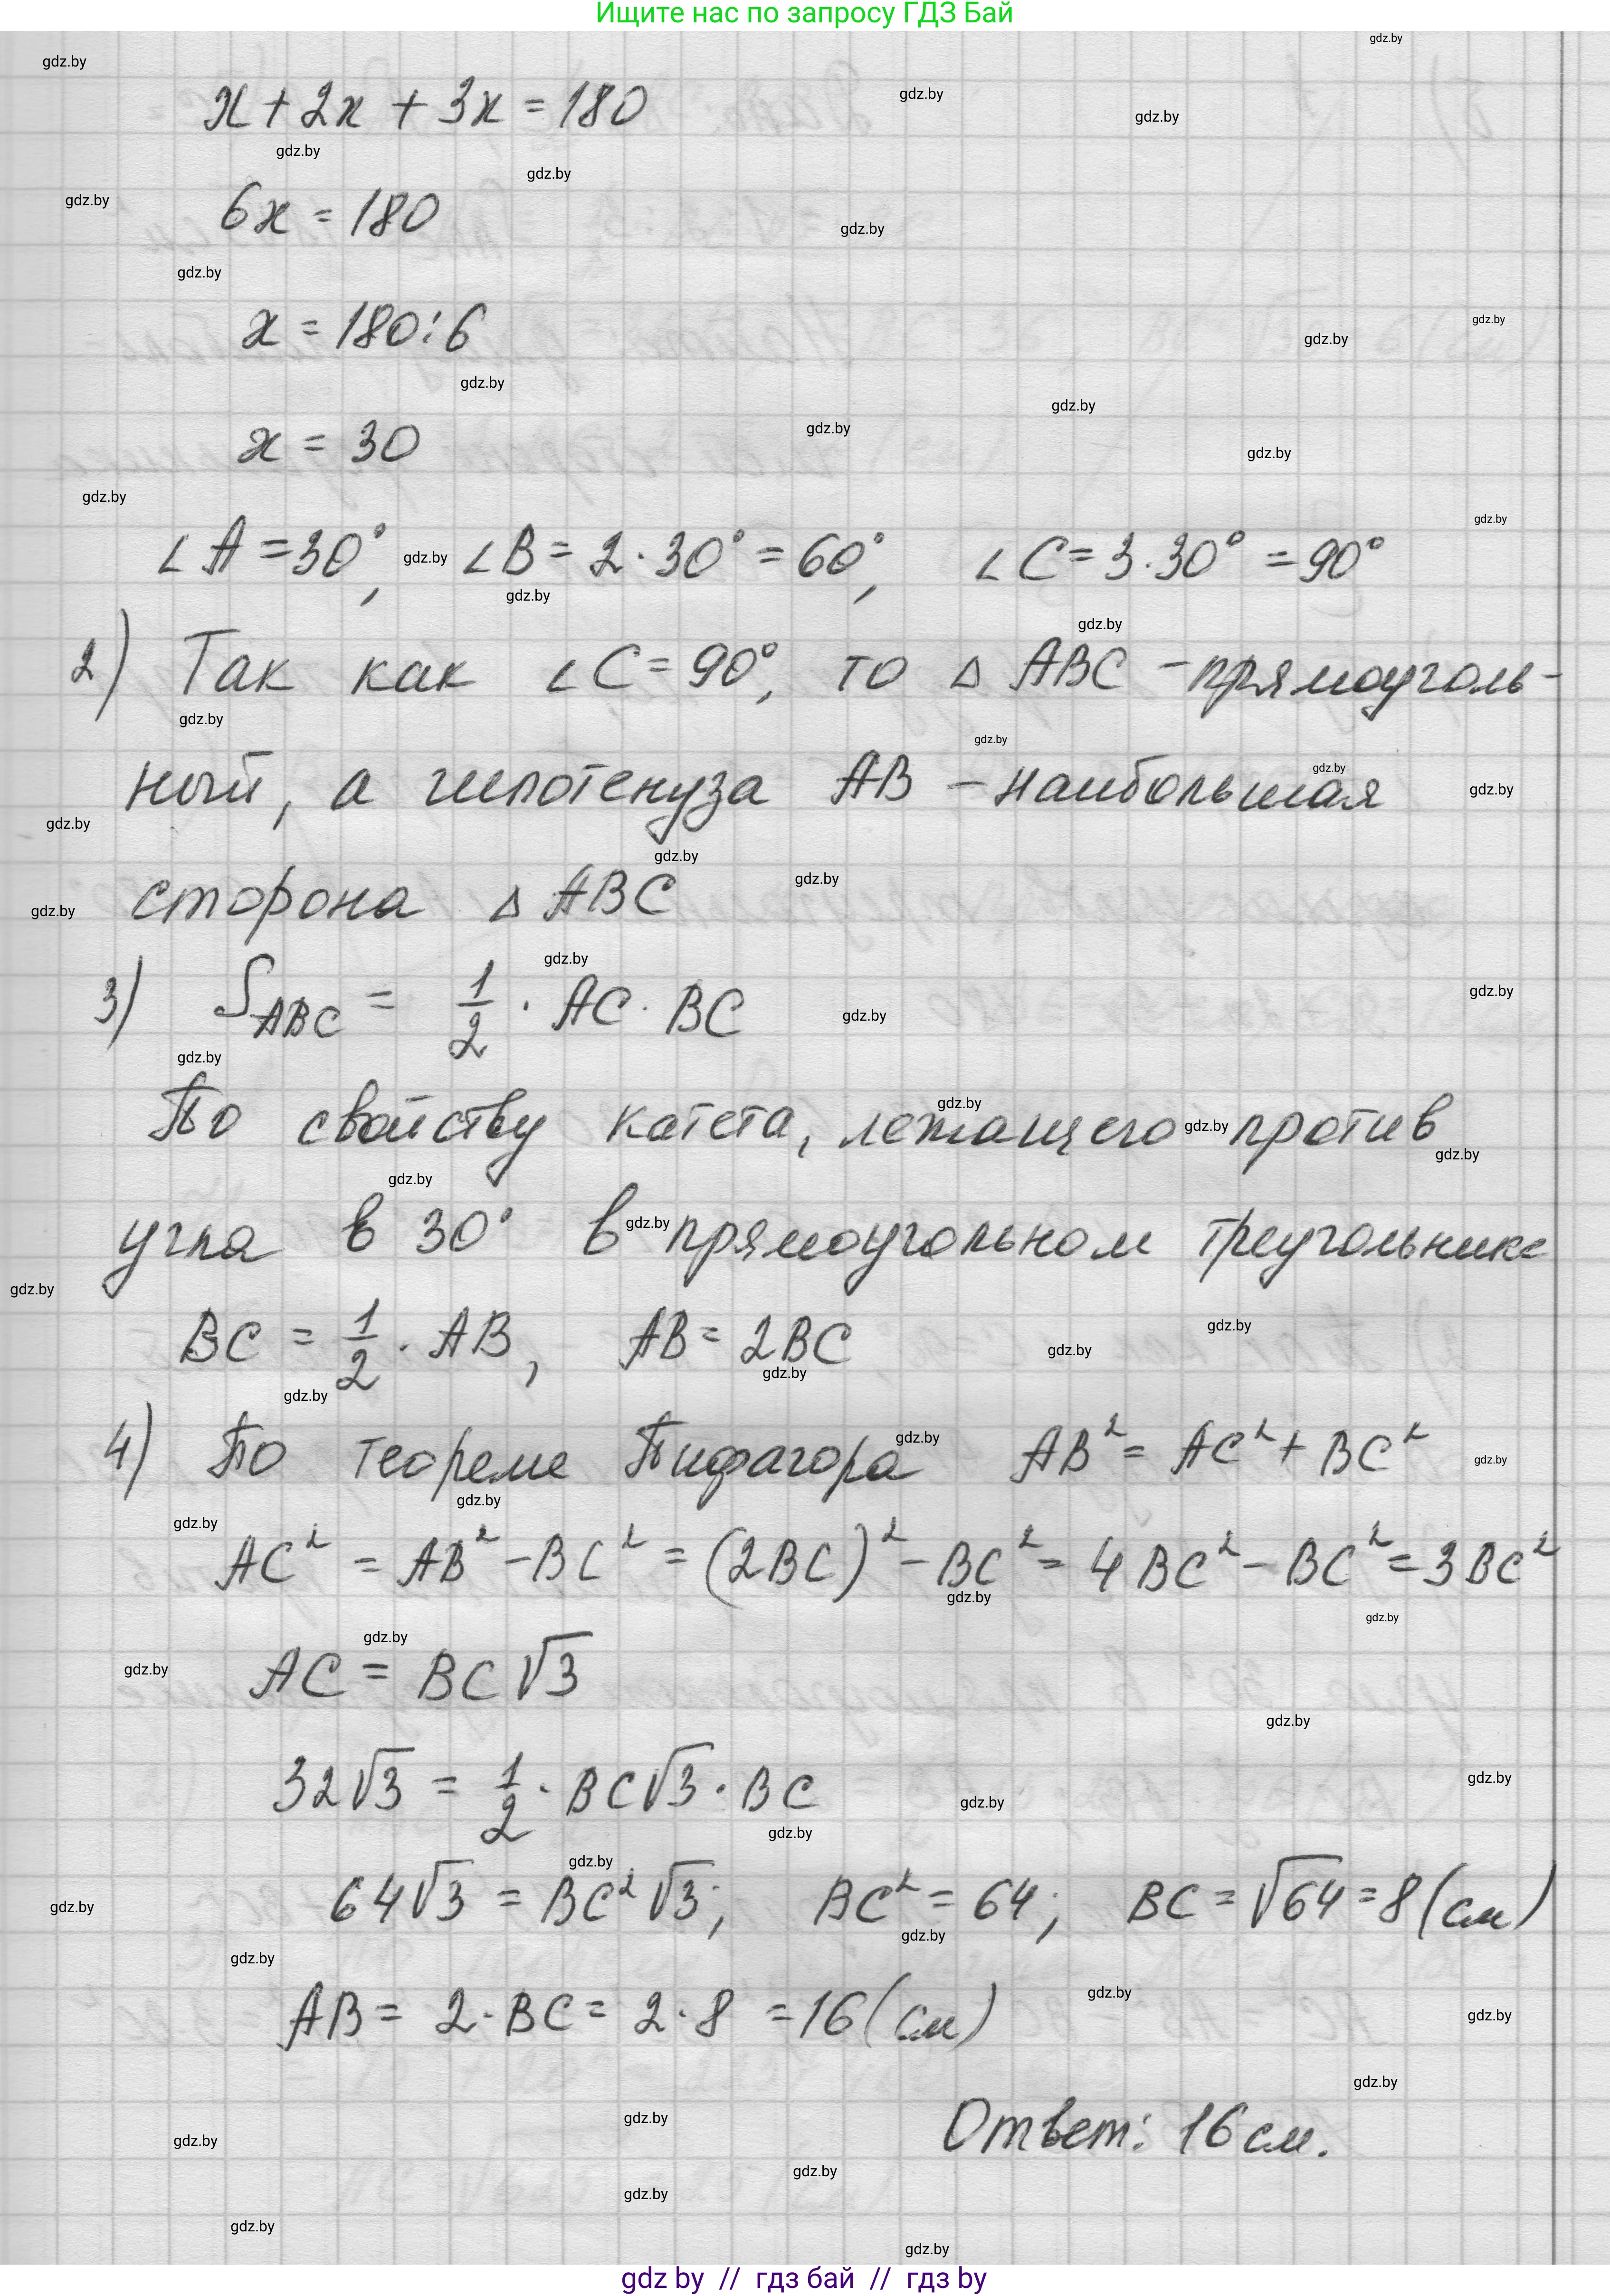 Ищите нас по запросу ГДЗ Бай
x + 2x + 3x = 180
6x = 180
x = 180 : 6
x = 30
∠A = 30°, ∠B = 2 · 30° = 60°, ∠C = 3 · 30° = 90°
2) Так как ∠C = 90°, то △ ABC – прямоуголь-
ный, а гипотенуза AB – наибольшая
сторона △ ABC
3) S_ABC = 1/2 · AC · BC
По свойству катета, лежащего против
угла в 30° в прямоугольном треугольнике
BC = 1/2 · AB, AB = 2BC
4) По теореме Пифагора AB² = AC² + BC²
AC² = AB² – BC² = (2BC)² – BC² = 4BC² – BC² = 3BC²
AC = BC√3
32√3 = 1/2 · BC√3 · BC
64√3 = BC²√3; BC² = 64; BC = √64 = 8 (см)
AB = 2 · BC = 2 · 8 = 16 (см)
Ответ: 16 см.
gdz by // гдз бай // гдз by